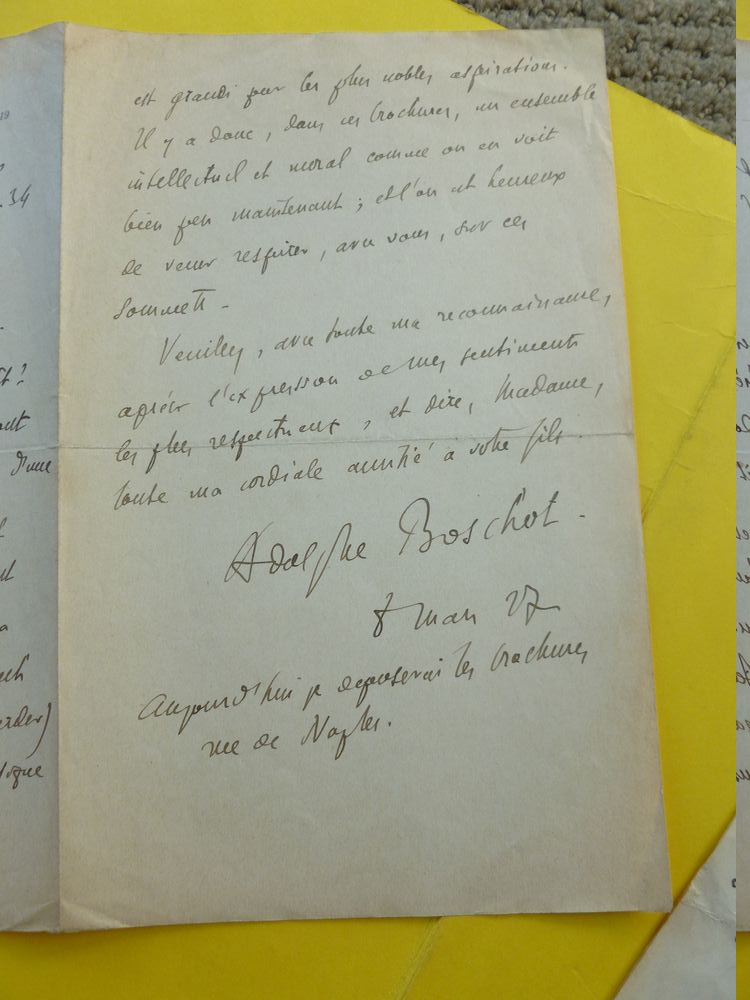 est grandi par les plus nobles aspirations.
Il y a donc, dans ces brochures, un ensemble
intellectuel et moral comme on en voit
bien peu maintenant ; et l'on est heureux
de venir respirer, avec vous, sur ces
sommets.
Veuillez, avec toute ma reconnaissance,
agréer l'expression de mes sentiments
les plus respectueux, et dire, Madame,
toute ma cordiale amitié à votre fils.
Adolphe Boschot.
8 mars 27
Aujourd'hui je déposerai les brochures
rue de Naples.
19
.34
t?
out
d'une
erder)